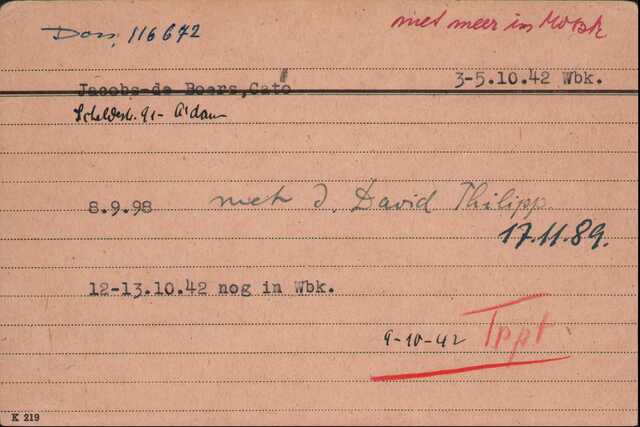 Dos, 116672
niet meer in Wbk
Jacobs-de Boers, Cato
3-5.10.42 Wbk.
Scheldestr. 91- A'dam
8.9.98
met J. David Philipp
17.11.89.
12-13.10.42 nog in Wbk.
9-10-42 Tppt
K 219